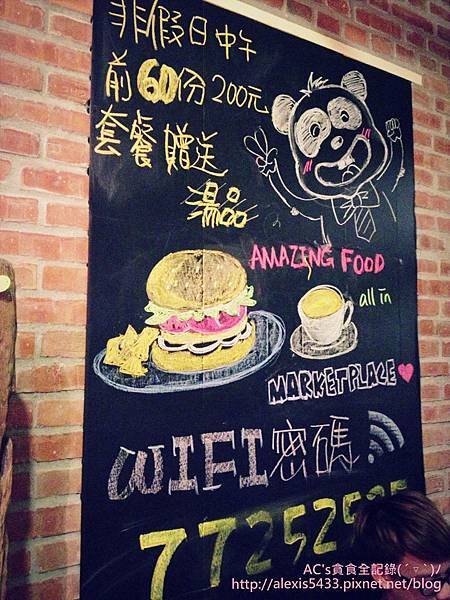 非假日中午
前60份200元
套餐贈送
湯品
AMAZING FOOD
all in
MARKETPLACE
WIFI密碼
AC's貪食全記錄(´▽`)ﾉ
http://alexis5433.pixnet.net/blog